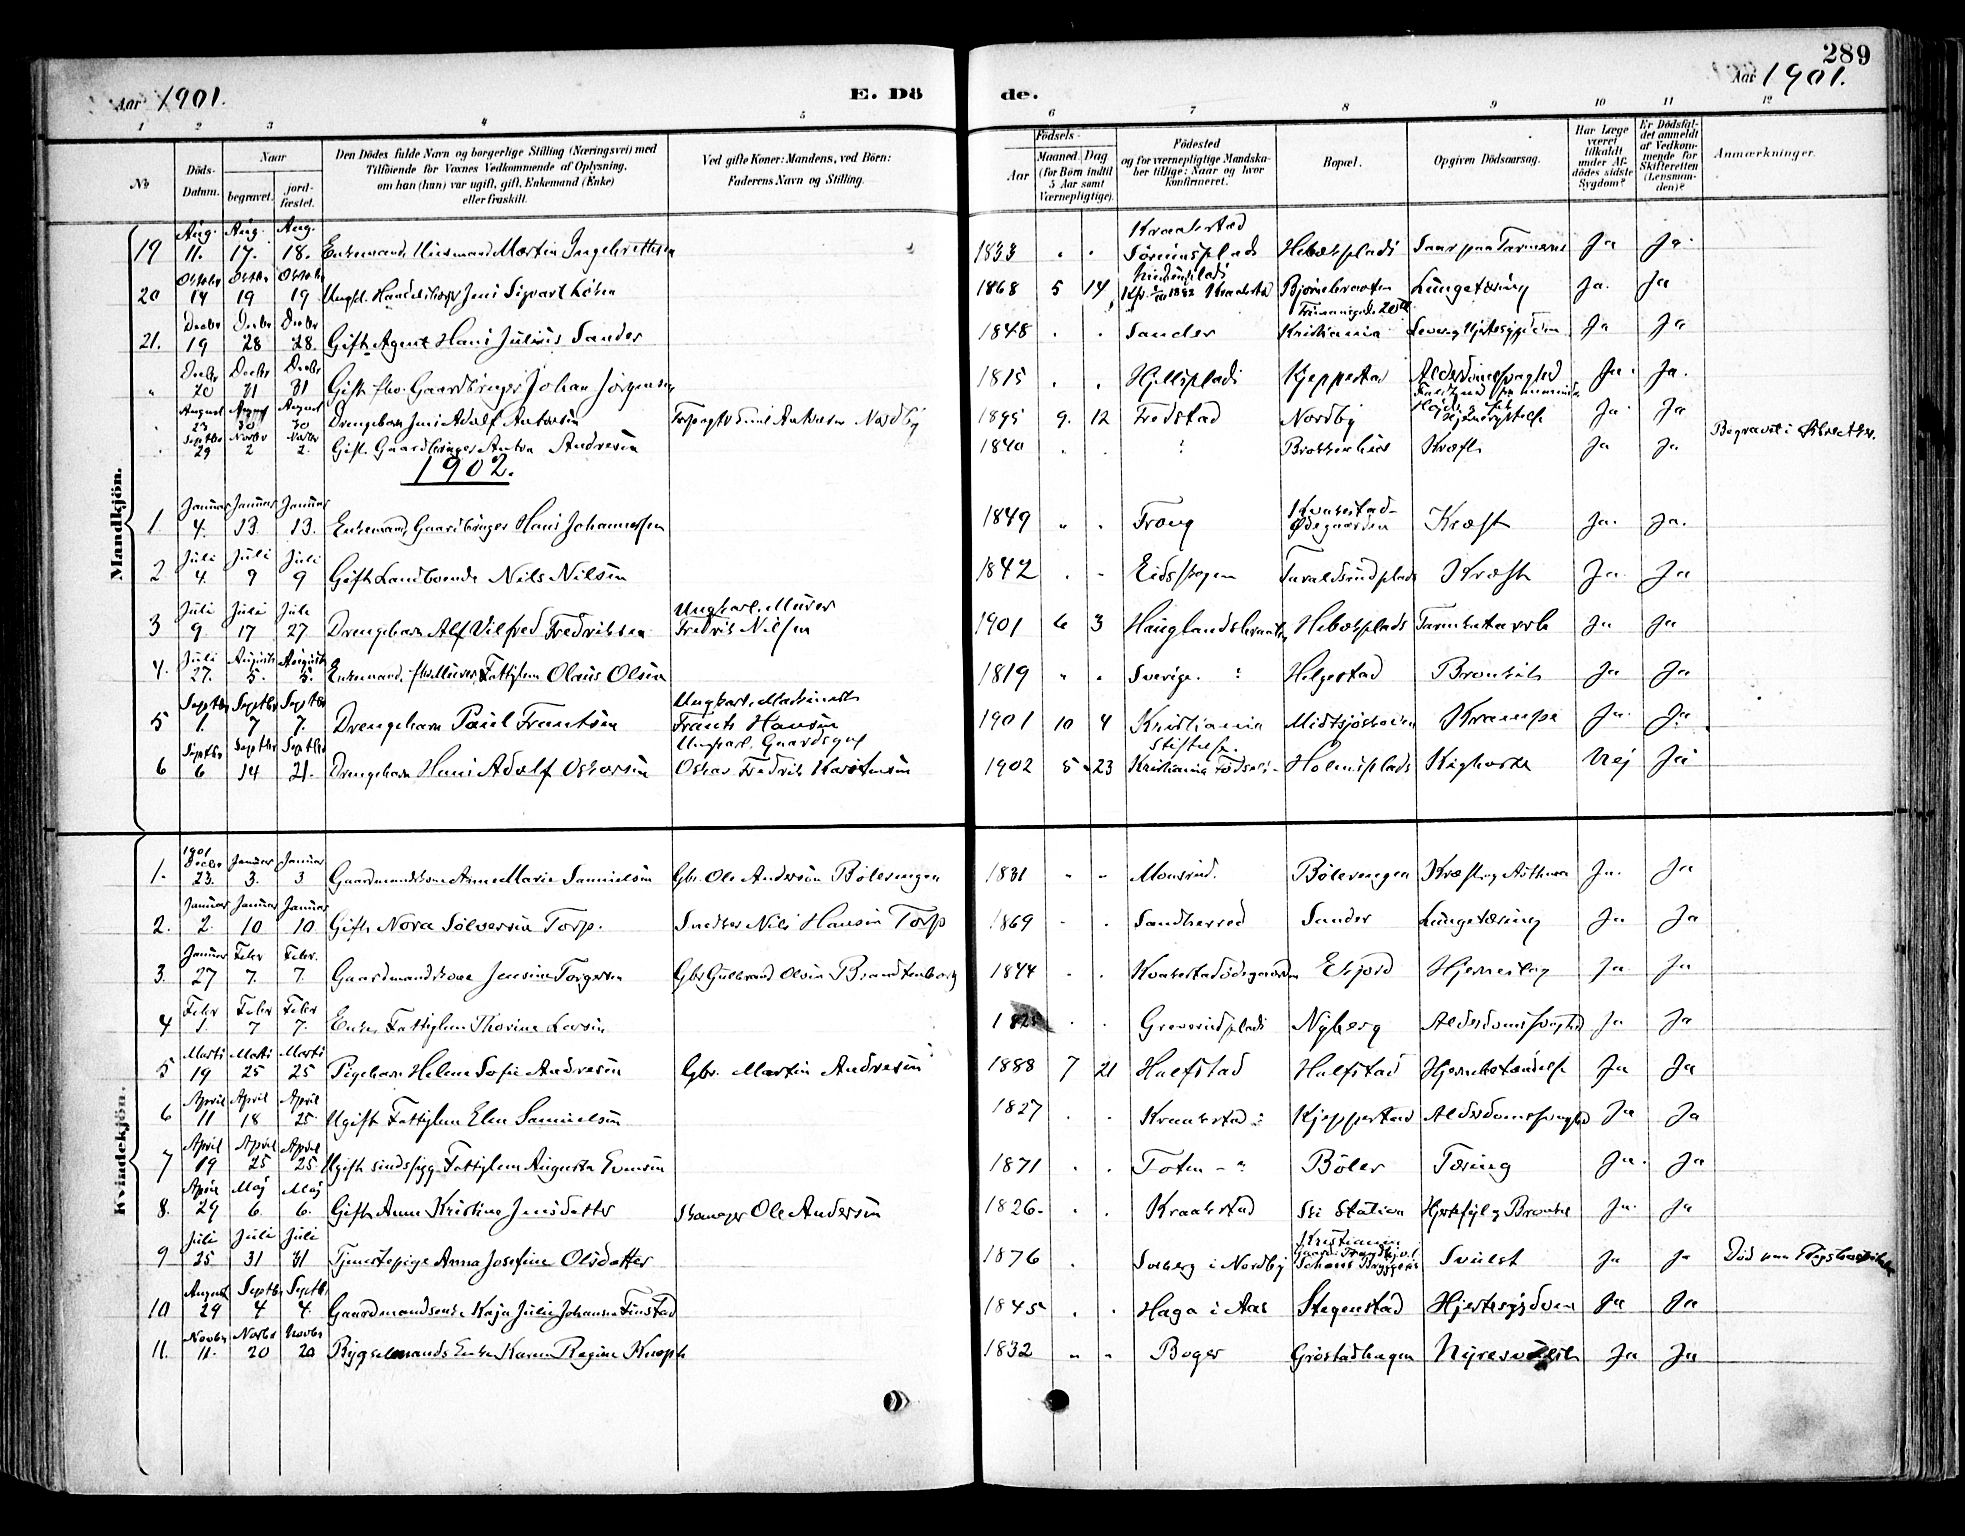 289
Aar 1901. E. Dö de. Aar 1901.
1 2 3 4 5 6 7 8 9 10 11 12
No Döds-Datum. Naar begravet. jord-fæstet. Den Dödes fulde Navn og borgerlige Stilling (Næringsvei) med Tilföiende for Voxnes Vedkommende af Oplysning, om han (hun) var ugift, gift, Enkemand (Enke) eller fraskilt. Ved gifte Koner: Mandens, ved Börn: Faderens Navn og Stilling. Födsels- Aar Maaned, Dag (for Börn indtil 5 Aar samt Værnepligtige). Födested og for værnepligtige Mandska-ber tillige: Naar og hvor konfirmeret. Bopæl. Opgiven Dödsaarsag. Har Læge været tilkaldt under Af-dödes sidste Sygdom? Er Dödsfal-det anmeldt af Vedkom-mende for Skifteretten (Lensman-den)? Anmærkninger.
Mandkjön.
Aug. Aug. Aug. Kraakstad
19 11. 17. 18. Enkemand Husmand Martin Ingebrethsen 1833 Hebækplads Saar paa Tarmene Ja Ja.
Oktober Oktbr Oktober
20 14 19 19 Ungk. Jens Sigvart 1868 5 14 Kfr. 1882 Kraakstad Bjørnebraaten Lungetæring Ja. Ja
Decbr Decbr Decbr
21. 19 28 28. Gift Agent Hans Julius Sander 1848 Sander Kristiania Ja Ja
Decbr Decbr Decbr
" 20 31 31 Gift fhv. Gaardbruger Johan Jørgensen 1815 Kjeppestad Alderdomssvaghed Ja. Ja.
August August August
23 30 30 Drengebarn Jens Adolf Antonsen Emil Antonsen Nordby 1895 9. 12 Fredstad Nordby Ja Ja
Septbr Novbr Novbr
29 2 2. Gift Gaardbruger Anton Andresen 1840 Kræft Ja Ja. Begravet i
1902.
Januar Januar Januar
1. 4. 13. 13. Enkemand, Gaardbruger Hans Johannessen 1849 " Kraakstad-Ødegaarden Kræft Ja. Ja.
Juli Juli Juli
2 4. 9 9 Gift Landboende Nils Nilsen 1842 Eidskogen Kræft Ja. Ja
Juli Juli Juli Ungkarl. Murer
3 9 17 27 Drengebarn Alf Vilfred Fredriksen Fredrik Nilsen 1901 6 3 Hauglandsbraaten Hebækplads Tarmkatarrh Ja Ja
Juli August August
4. 27. 5. 5. Enkemand, fhv. Murer, Fattiglem Olaus Olsen 1819 " Sverige. Helgestad Bronkit Ja Ja
Septbr Septbr Septbr Ungkarl, Maskinist
5 1. 7 7. Drengebarn Paul Frantsen Frants Hansen 1901 10 4 Kristiania Midtsjøskoven Krampe Ja. Ja
Septbr Septbr Septbr Ungkarl. Gaardsgut Stiftelse.
6 6 14 21. Drengebarn Hans Adolf Oskarsen Oskar Fredrik Karstensen 1902 5 23 Kristiania Fødsels- Holmsplads Kighoste Nej Ja
Kvindekjön.
1901
Decbr Januar Januar
1. 23. 3. 3 Gaardmandskone Anne Marie Samuelsen Gbr. Ole Andersen Bølerengen 1831 Monsrud. Bølerengen Kræft og Asthma Ja. Ja
Januar Januar Januar
2. 2. 10 10 Gift Nora Sølversen Torp. Snedker Nils Hansen Torp 1869 Sandherred Sander Lungetæring Ja Ja
Januar Febr Febr.
3. 27 7. 7. Gaardmandskone Jensine Torgersen Gbr Gulbrand Olsen Brandtenborg 1844 Kraakstadødegaarden Eljord Hjerneslag Ja Ja
Febr Febr Febr
4 1. 7 7. Enke, Fattiglem Thorine Larsen Greverudplads Nyberg Alderdomssvaghed Ja Ja
Marts Marts Marts
5 19 25 25 Pigebarn Helene Sofie Andresen Gbr. Martin Andresen 1888 7 21 Halfstad Halfstad Hjernebetændelse Ja Ja
April April April
6 11 18 25 Ugift Fattiglem Elen Samuelsen 1827 Kraakstad Kjeppestad Alderdomssvaghed Ja Ja
April April April
7 19 25 25 Ugift sindssyg Fattiglem Augusta Evensen 1871 Toten Bøler Tæring Ja. Ja
April Maj Maj
8. 29 6. 6. Gift Anne Kristine Jensdatter Skomager Ole Andersen 1826. Kraakstad Ski Station Hjertefejl og Bronkit Ja. Ja
Juli Juli Juli Kristiania
9 25 31 31 Tjenestepige Anna Josefine Olsdatter 1876 Solberg i Nordby Svulst Ja Ja Død paa Rigshospitalet
August Septbr Septbr
10 29 4 4. Gaardmandsenke Kaja Julie Johansen Finstad 1845 Haga i Aas Stegenstad Hjertesygdom Ja Ja
Novbr Novbr Novbr
11. 11. 20 20 Bygselmands Enke Karen Regine Knoph 1832 " " Boger Grøstadhagen Nyresvulst Ja Ja